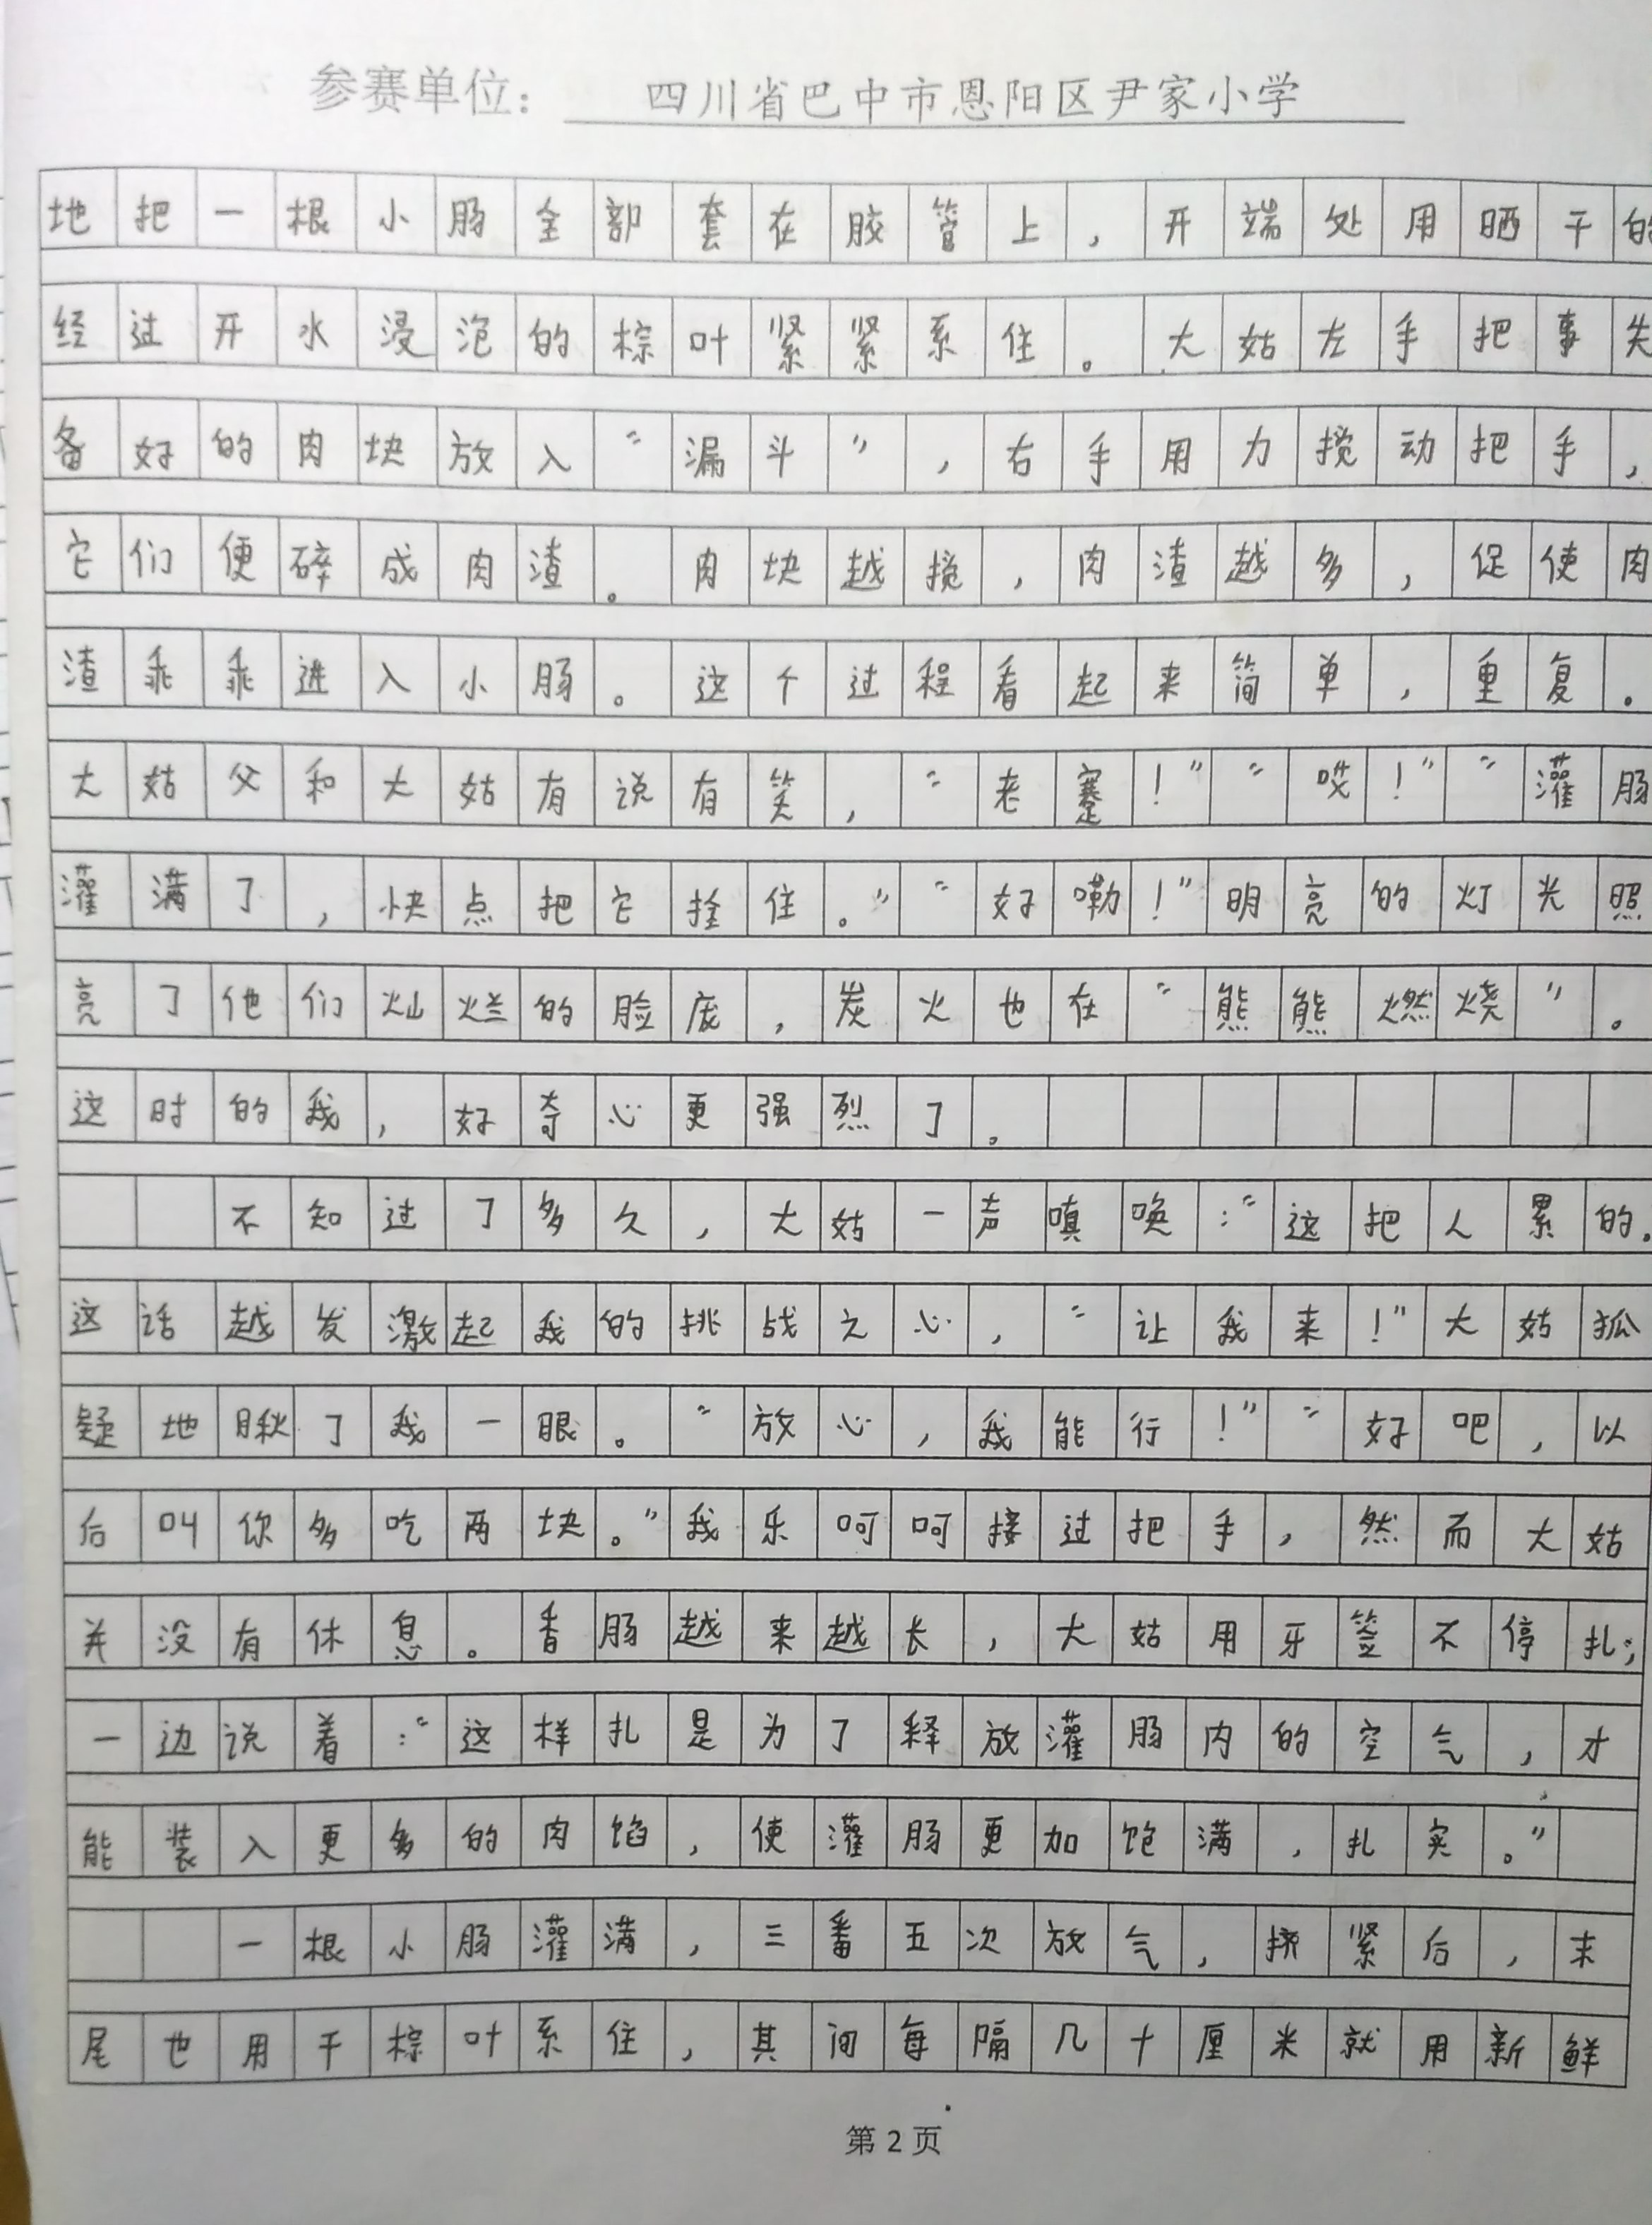 参赛单位： 四川省巴中市恩阳区尹家小学
地把一根小肠全部套在胶管上，开端处用晒干的
经过开水浸泡的棕叶紧紧系住。大姑左手把事先
备好的肉块放入“漏斗”，右手用力搅动把手，
它们便碎成肉渣。肉块越搅，肉渣越多，促使肉
渣乖乖进入小肠。这个过程看起来简单，重复。
大姑父和大姑有说有笑，“老蹇！”“哎！”“灌肠
灌满了，快点把它拴住。”“好嘞！”明亮的灯光照
亮了他们灿烂的脸庞，炭火也在“熊熊燃烧”。
这时的我，好奇心更强烈了。
不知过了多久，大姑一声嗔唤：“这把人累的。
这话越发激起我的挑战之心，“让我来！”大姑狐
疑地瞅了我一眼。“放心，我能行！”“好吧，以
后叫你多吃两块。”我乐呵呵接过把手，然而大姑
并没有休息。香肠越来越长，大姑用牙签不停扎；
一边说着：“这样扎是为了释放灌肠内的空气，才
能装入更多的肉馅，使灌肠更加饱满，扎实。”
一根小肠灌满，三番五次放气，挤紧后，末
尾也用干棕叶系住，其间每隔几十厘米就用新鲜
第 2 页